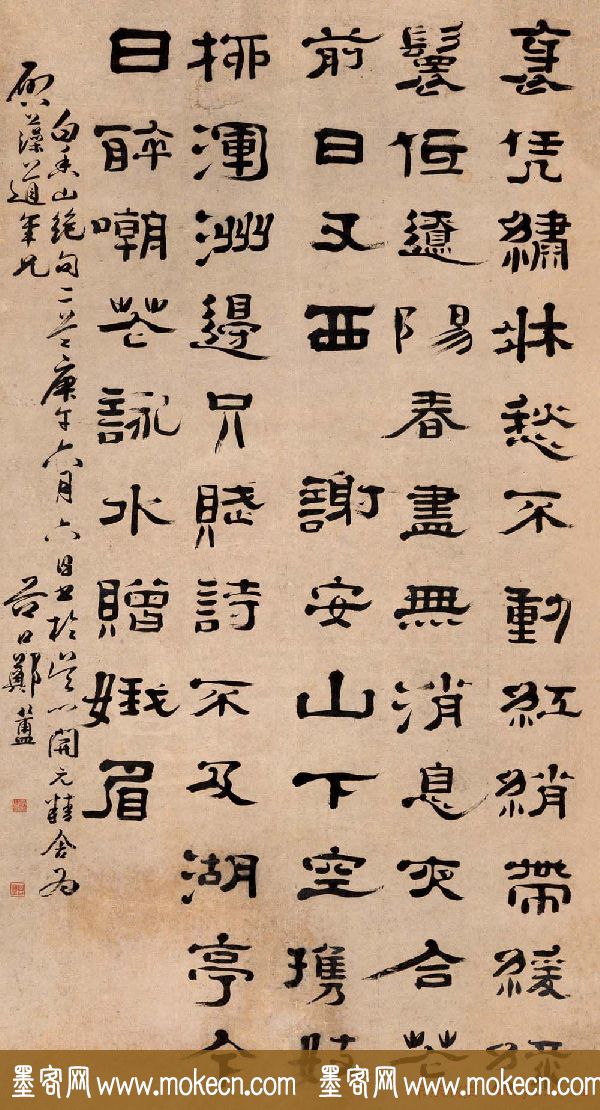 凭繡牀愁不動紅綃帶緩綠
鬟低遼陽春盡無消息夜合花
前日又西 謝安山下空攜妓
柳渾洲邊只賦詩不及湖亭今
日醉嘲花詠水贈娥眉
白香山絕句二首庚午六月六日書於吳門開元精舍為
藻道年兄
谷口鄭簠
墨客网 www.mokecn.com 墨客网 www.mokecn.com